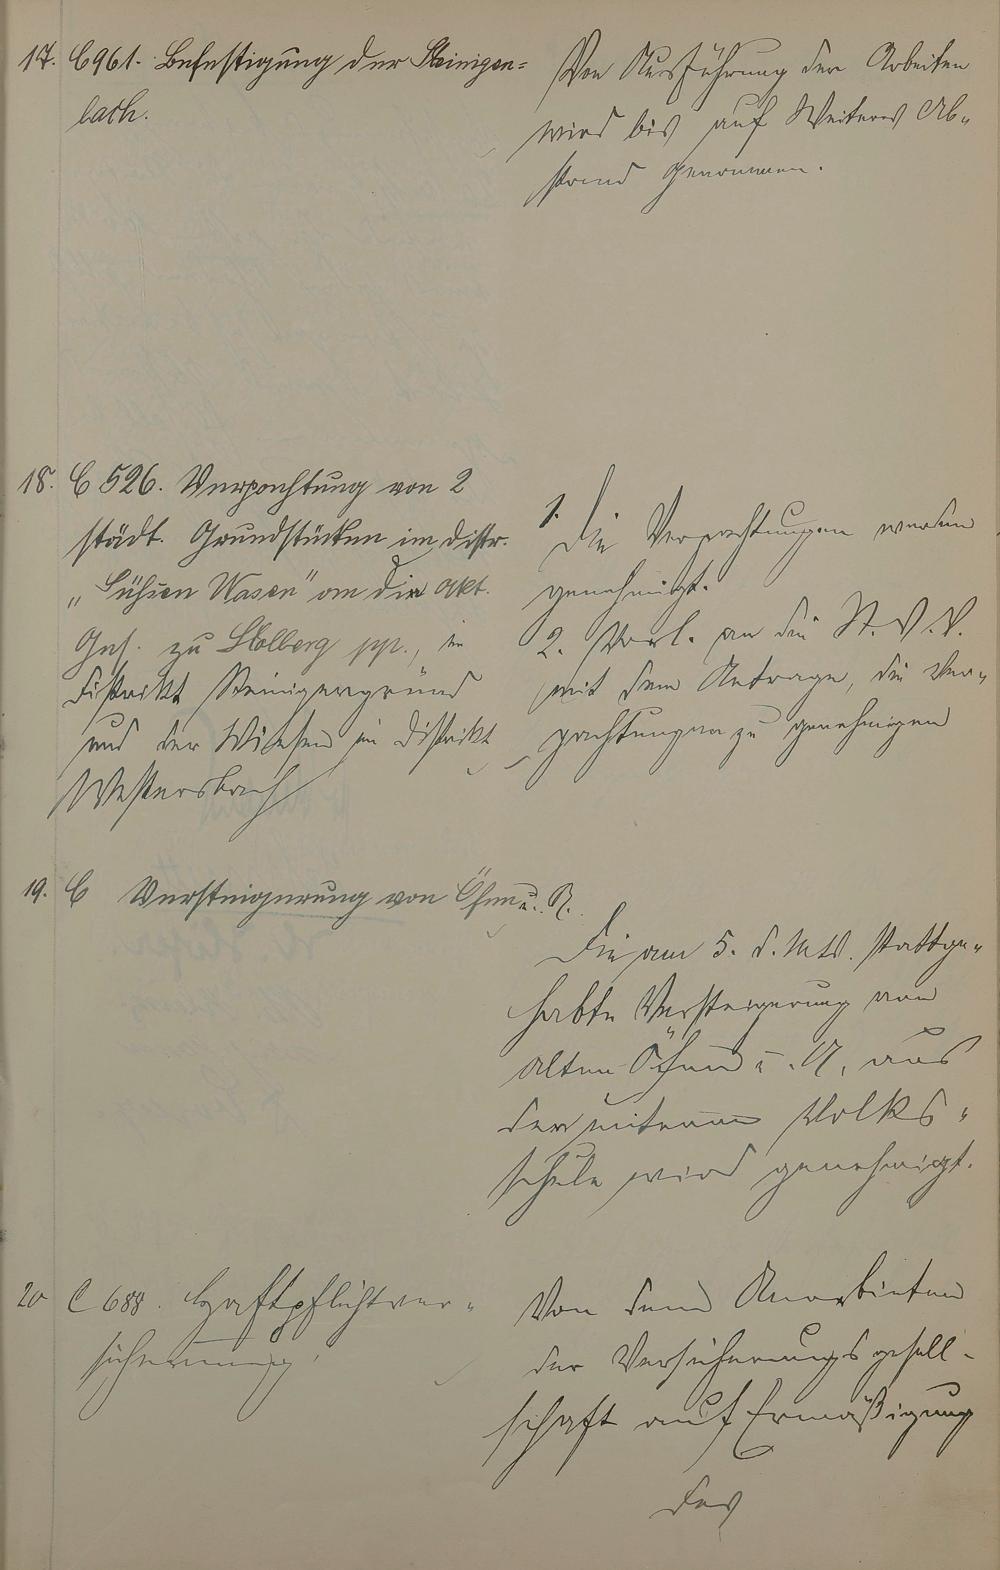 17. C 961. Befestigung der Steinigen-
lach.
Von Ausführung der Arbeiten
wird bis auf Weiteres Ab-
stand genommen.
18. C 526. Verpachtung von 2
städt. Grundstücken im Distr.
„Süßen Wasen" an die Akt.
Ges. zu Stolberg pp., im
Distrikt Steinigengrund
und der Wiesen im Distrikt
Westersbach
1. Die Verpachtungen werden
genehmigt.
2. Vorl. an die St. V. V.
mit dem Antrage, die Ver-
pachtungen zu genehmigen
19. C Versteigerung von Öfen u. A.
Die am 5. d. Mts. stattge-
habte Versteigerung von
alten Öfen u. A. aus
der unteren Volks-
schule wird genehmigt.
20 C 688. Haftpflichtver-
sicherung.
Von dem Anerbieten
der Versicherungsgesell-
schaft auf Ermäßigung
des